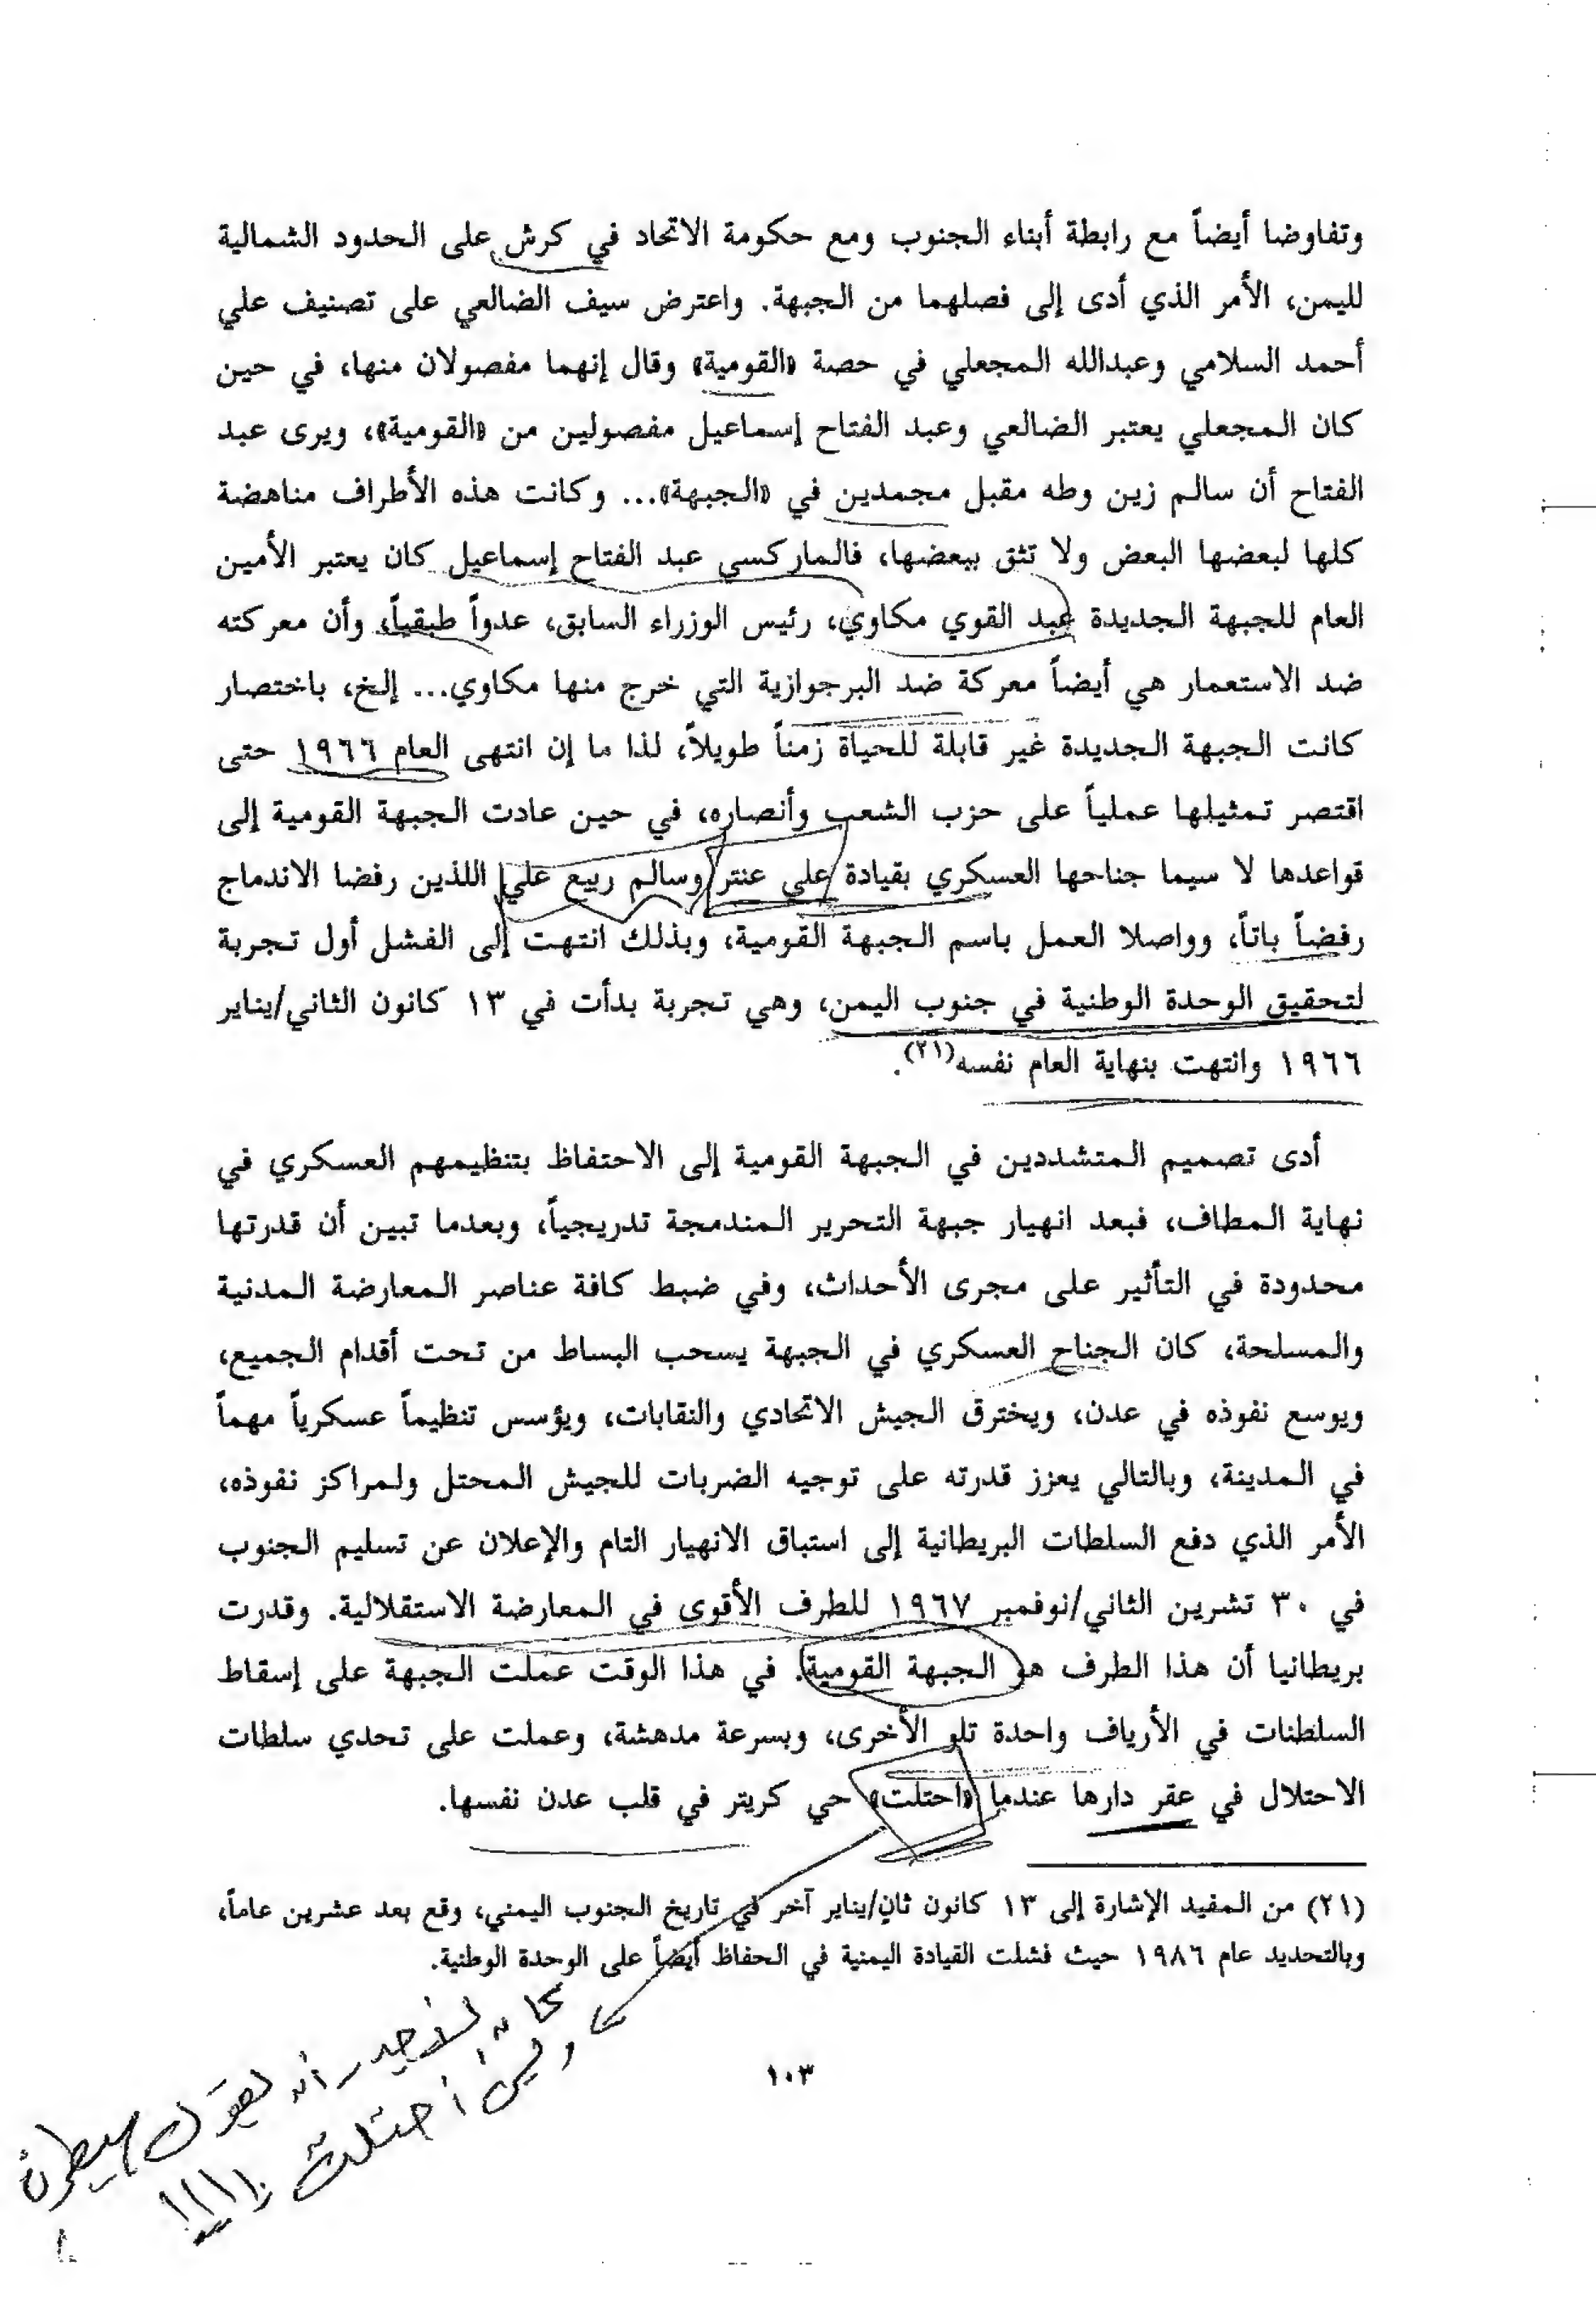 وتفاوضا أيضاً مع رابطة أبناء الجنوب ومع حكومة الاتحاد في كرش على الحدود الشمالية
لليمن، الأمر الذي أدى إلى فصلهما من الجبهة. واعترض سيف الضالعي على تصنيف علي
أحمد السلامي وعبدالله المجعلي في حصة «القومية» وقال إنهما مفصولان منها، في حين
كان المجعلي يعتبر الضالعي وعبد الفتاح إسماعيل مفصولين من «القومية»، ويرى عبد
الفتاح أن سالم زين وطه مقبل مجمدين في «الجبهة»... وكانت هذه الأطراف مناهضة
كلها لبعضها البعض ولا تثق ببعضها، فالماركسي عبد الفتاح إسماعيل كان يعتبر الأمين
العام للجبهة الجديدة عبد القوي مكاوي، رئيس الوزراء السابق، عدواً طبقياً، وأن معركته
ضد الاستعمار هي أيضاً معركة ضد البرجوازية التي خرج منها مكاوي... إلخ، باختصار
كانت الجبهة الجديدة غير قابلة للحياة زمناً طويلاً، لذا ما إن انتهى العام ١٩٦٦ حتى
اقتصر تمثيلها عملياً على حزب الشعب وأنصاره، في حين عادت الجبهة القومية إلى
قواعدها لا سيما جناحها العسكري بقيادة علي عنتر وسالم ربيع علي اللذين رفضا الاندماج
رفضاً باتاً، وواصلا العمل باسم الجبهة القومية، وبذلك انتهت إلى الفشل أول تجربة
لتحقيق الوحدة الوطنية في جنوب اليمن، وهي تجربة بدأت في ١٣ كانون الثاني/يناير
١٩٦٦ وانتهت بنهاية العام نفسه(٢١).
أدى تصميم المتشددين في الجبهة القومية إلى الاحتفاظ بتنظيمهم العسكري في
نهاية المطاف، فبعد انهيار جبهة التحرير المندمجة تدريجياً، وبعدما تبين أن قدرتها
محدودة في التأثير على مجرى الأحداث، وفي ضبط كافة عناصر المعارضة المدنية
والمسلحة، كان الجناح العسكري في الجبهة يسحب البساط من تحت أقدام الجميع،
ويوسع نفوذه في عدن، ويخترق الجيش الاتحادي والنقابات، ويؤسس تنظيماً عسكرياً مهماً
في المدينة، وبالتالي يعزز قدرته على توجيه الضربات للجيش المحتل ولمراكز نفوذه،
الأمر الذي دفع السلطات البريطانية إلى استباق الانهيار التام والإعلان عن تسليم الجنوب
في ٣٠ تشرين الثاني/نوفمبر ١٩٦٧ للطرف الأقوى في المعارضة الاستقلالية. وقدرت
بريطانيا أن هذا الطرف هو الجبهة القومية. في هذا الوقت عملت الجبهة على إسقاط
السلطنات في الأرياف واحدة تلو الأخرى، وبسرعة مدهشة، وعملت على تحدي سلطات
الاحتلال في عقر دارها عندما «احتلت» حي كريتر في قلب عدن نفسها.
(٢١) من المفيد الإشارة إلى ١٣ كانون ثانٍ/يناير آخر في تاريخ الجنوب اليمني، وقع بعد عشرين عاماً،
وبالتحديد عام ١٩٨٦ حيث فشلت القيادة اليمنية في الحفاظ أيضاً على الوحدة الوطنية.
كان
وليس احتلت !!!!
١٠٣